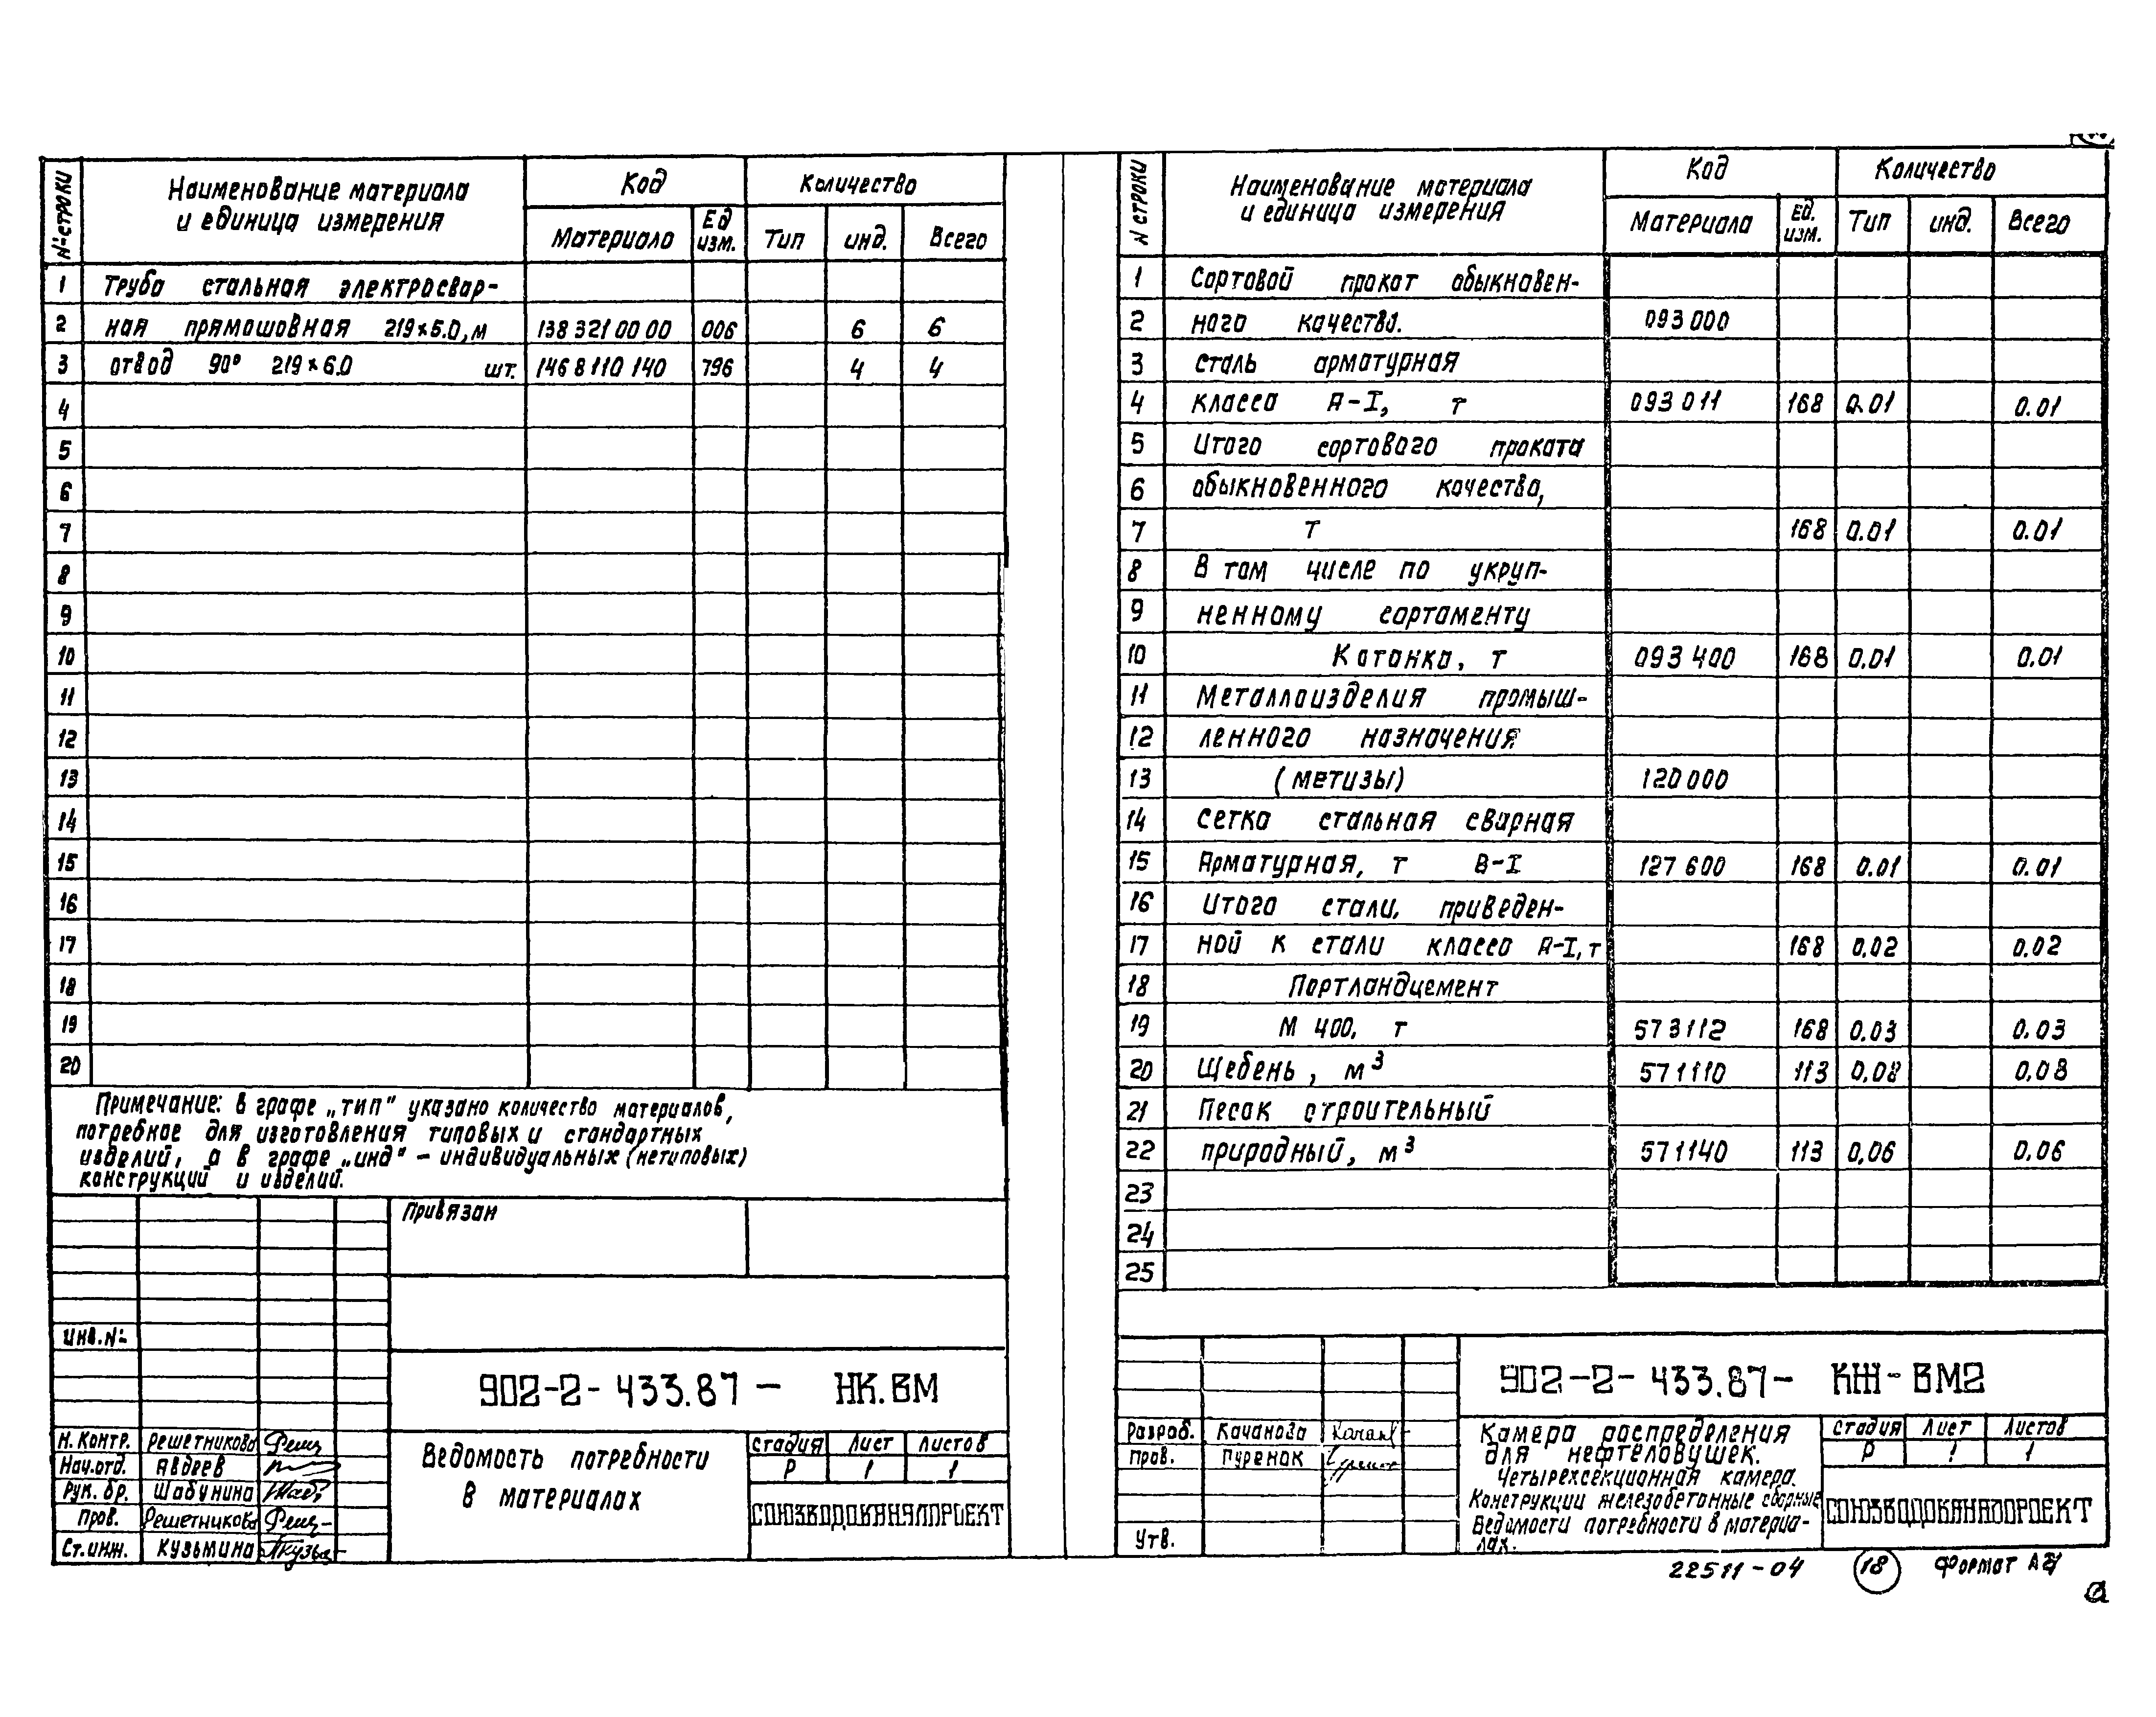 № строки
Наименование материала
и единица измерения
Код
Количество
Материала
Ед
изм.
Тип
инд.
Всего
1 Труба стальная электросвар-
2 ная прямошовная 219×5.0, м 138 321 00 00 006 6 6
3 отвод 90° 219×6.0 шт. 146 8 110 140 796 4 4
4
5
6
7
8
9
10
11
12
13
14
15
16
17
18
19
20
Примечание: в графе „тип" указано количество материалов,
потребное для изготовления типовых и стандартных
изделий, а в графе „инд" – индивидуальных (нетиповых)
конструкций и изделий.
Привязан
Инв. №
902-2-433.87 – НК.ВМ
Н. контр. Решетникова
Нач. отд. Авдеев
Рук. бр. Шабунина
Пров. Решетникова
Ст. инж. Кузьмина
Ведомость потребности
в материалах
стадия Лист Листов
Р 1 1
СОЮЗВОДОКАНАЛПРОЕКТ
N строки
Наименование материала
и единица измерения
Код
Количество
Материала
Ед.
изм.
Тип
инд.
Всего
1 Сортовой прокат обыкновен-
2 ного качества. 093 000
3 сталь арматурная
4 класса А-I, т 093 011 168 0.01 0.01
5 Итого сортового проката
6 обыкновенного качества,
7 т 168 0.01 0.01
8 В том числе по укруп-
9 ненному сортаменту
10 Катанка, т 093 400 168 0,01 0.01
11 Металлоизделия промыш-
12 ленного назначения
13 (метизы) 120 000
14 сетка стальная сварная
15 Арматурная, т В-I 127 600 168 0.01 0.01
16 Итого стали, приведен-
17 ной к стали класса А-I, т 168 0,02 0.02
18 Портландцемент
19 М 400, т 573112 168 0,03 0.03
20 Щебень, м³ 571110 113 0,08 0,08
21 Песок строительный
22 природный, м³ 571140 113 0,06 0.06
23
24
25
902-2-433.87- КЖ-ВМ2
Разраб. Качанова
Пров. Гуренок
Утв.
Камера распределения
для нефтеловушек.
Четырехсекционная камера.
Конструкции железобетонные сборные
Ведомости потребности в материа-
лах.
стадия Лист Листов
Р 1 1
СОЮЗВОДОКАНАЛПРОЕКТ
22511-04 18 Формат